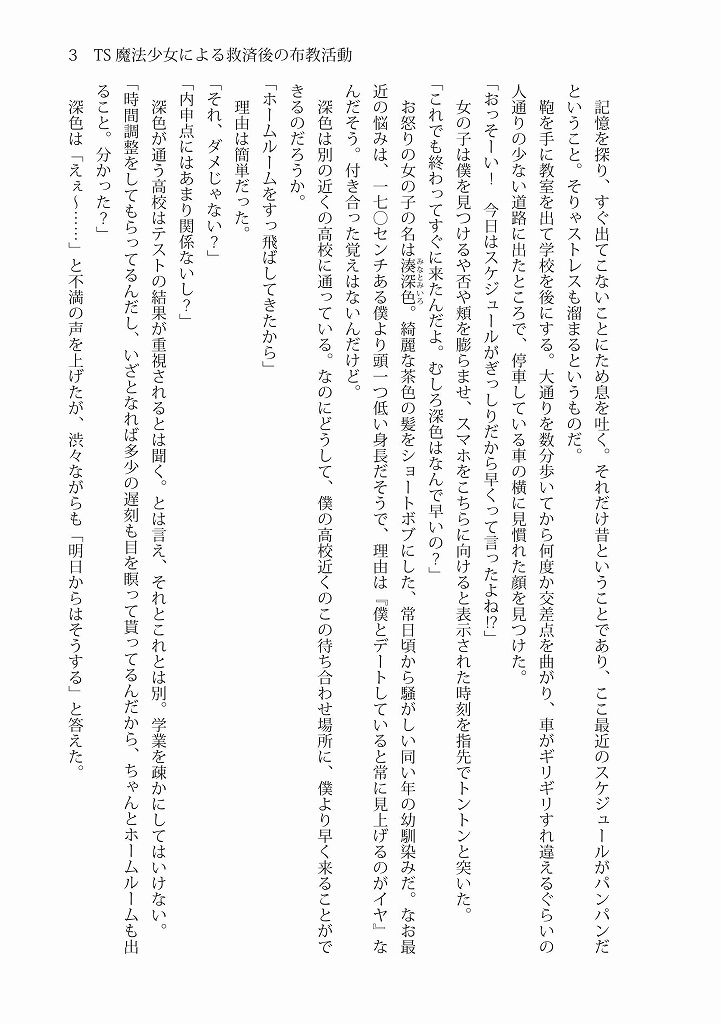 3　TS魔法少女による救済後の布教活動
　記憶を探り、すぐ出てこないことにため息を吐く。それだけ昔ということであり、ここ最近のスケジュールがパンパンだ
ということ。そりゃストレスも溜まるというものだ。
　鞄を手に教室を出て学校を後にする。大通りを数分歩いてから何度か交差点を曲がり、車がギリギリすれ違えるぐらいの
人通りの少ない道路に出たところで、停車している車の横に見慣れた顔を見つけた。
「おっそーい！　今日はスケジュールがぎっしりだから早くって言ったよね⁉」
　女の子は僕を見つけるや否や頬を膨らませ、スマホをこちらに向けると表示された時刻を指先でトントンと突いた。
「これでも終わってすぐに来たんだよ。むしろ深色はなんで早いの？」
　お怒りの女の子の名は湊深色。綺麗な茶色の髪をショートボブにした、常日頃から騒がしい同い年の幼馴染みだ。なお最
みなとみいろ
近の悩みは、一七〇センチある僕より頭一つ低い身長だそうで、理由は『僕とデートしていると常に見上げるのがイヤ』な
んだそう。付き合った覚えはないんだけど。
　深色は別の近くの高校に通っている。なのにどうして、僕の高校近くのこの待ち合わせ場所に、僕より早く来ることがで
きるのだろうか。
「ホームルームをすっ飛ばしてきたから」
　理由は簡単だった。
「それ、ダメじゃない？」
「内申点にはあまり関係ないし？」
　深色が通う高校はテストの結果が重視されるとは聞く。とは言え、それとこれとは別。学業を疎かにしてはいけない。
「時間調整をしてもらってるんだし、いざとなれば多少の遅刻も目を瞑って貰ってるんだから、ちゃんとホームルームも出
ること。分かった？」
　深色は「えぇ～……」と不満の声を上げたが、渋々ながらも「明日からはそうする」と答えた。